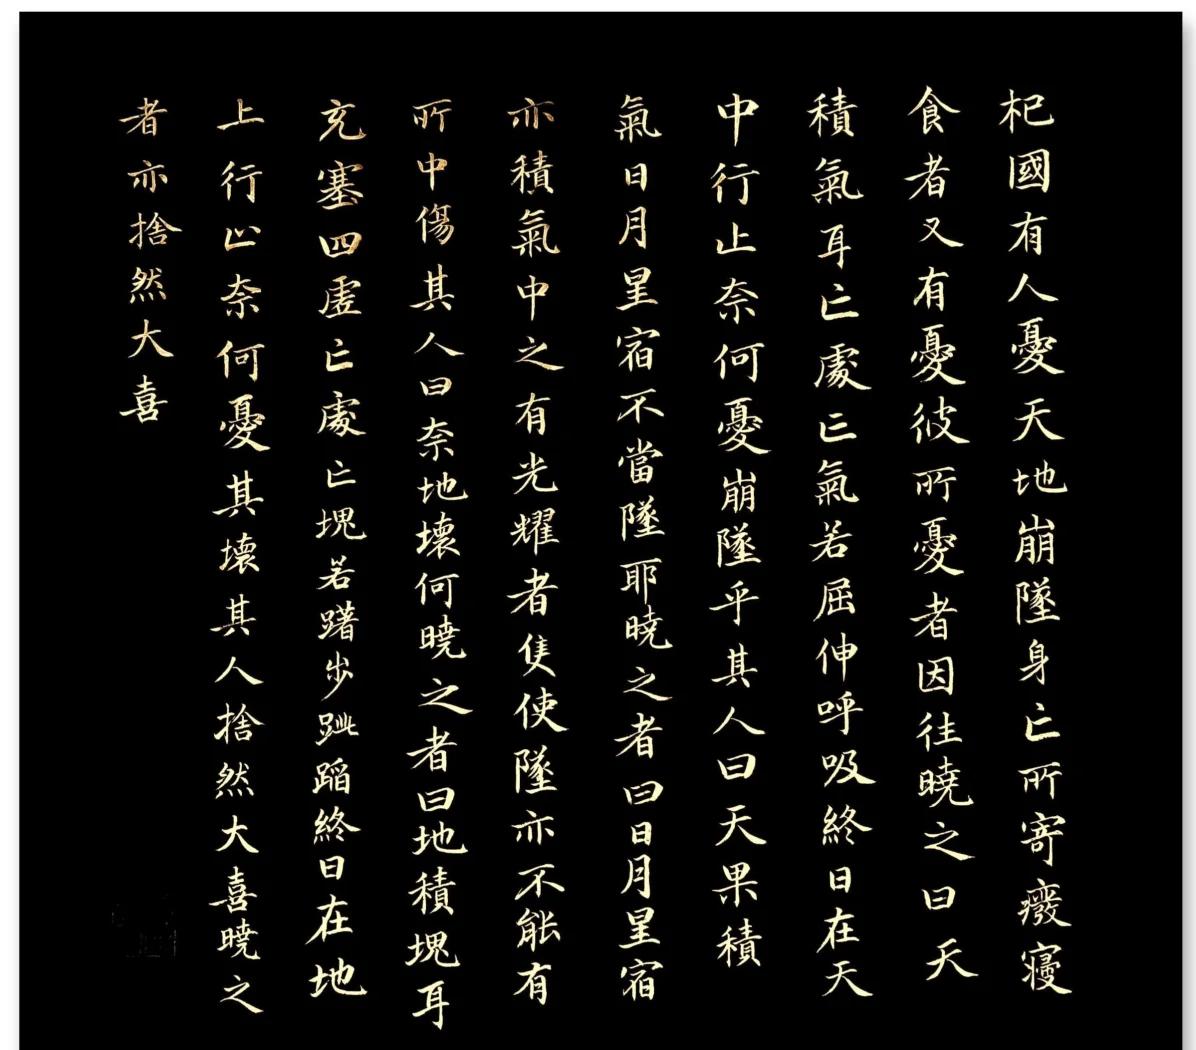 杞國有人憂天地崩墜身亡所寄癈寢
食者又有憂彼所憂者因往曉之曰天
積氣耳亡處亡氣若屈伸呼吸終日在天
中行止奈何憂崩墜乎其人曰天果積
氣日月星宿不當墜耶曉之者曰日月星宿
亦積氣中之有光耀者隻使墜亦不能有
所中傷其人曰奈地壞何曉之者曰地積塊耳
充塞四虛亡處亡塊若躇步跐蹈終日在地
上行止奈何憂其壞其人捨然大喜曉之
者亦捨然大喜